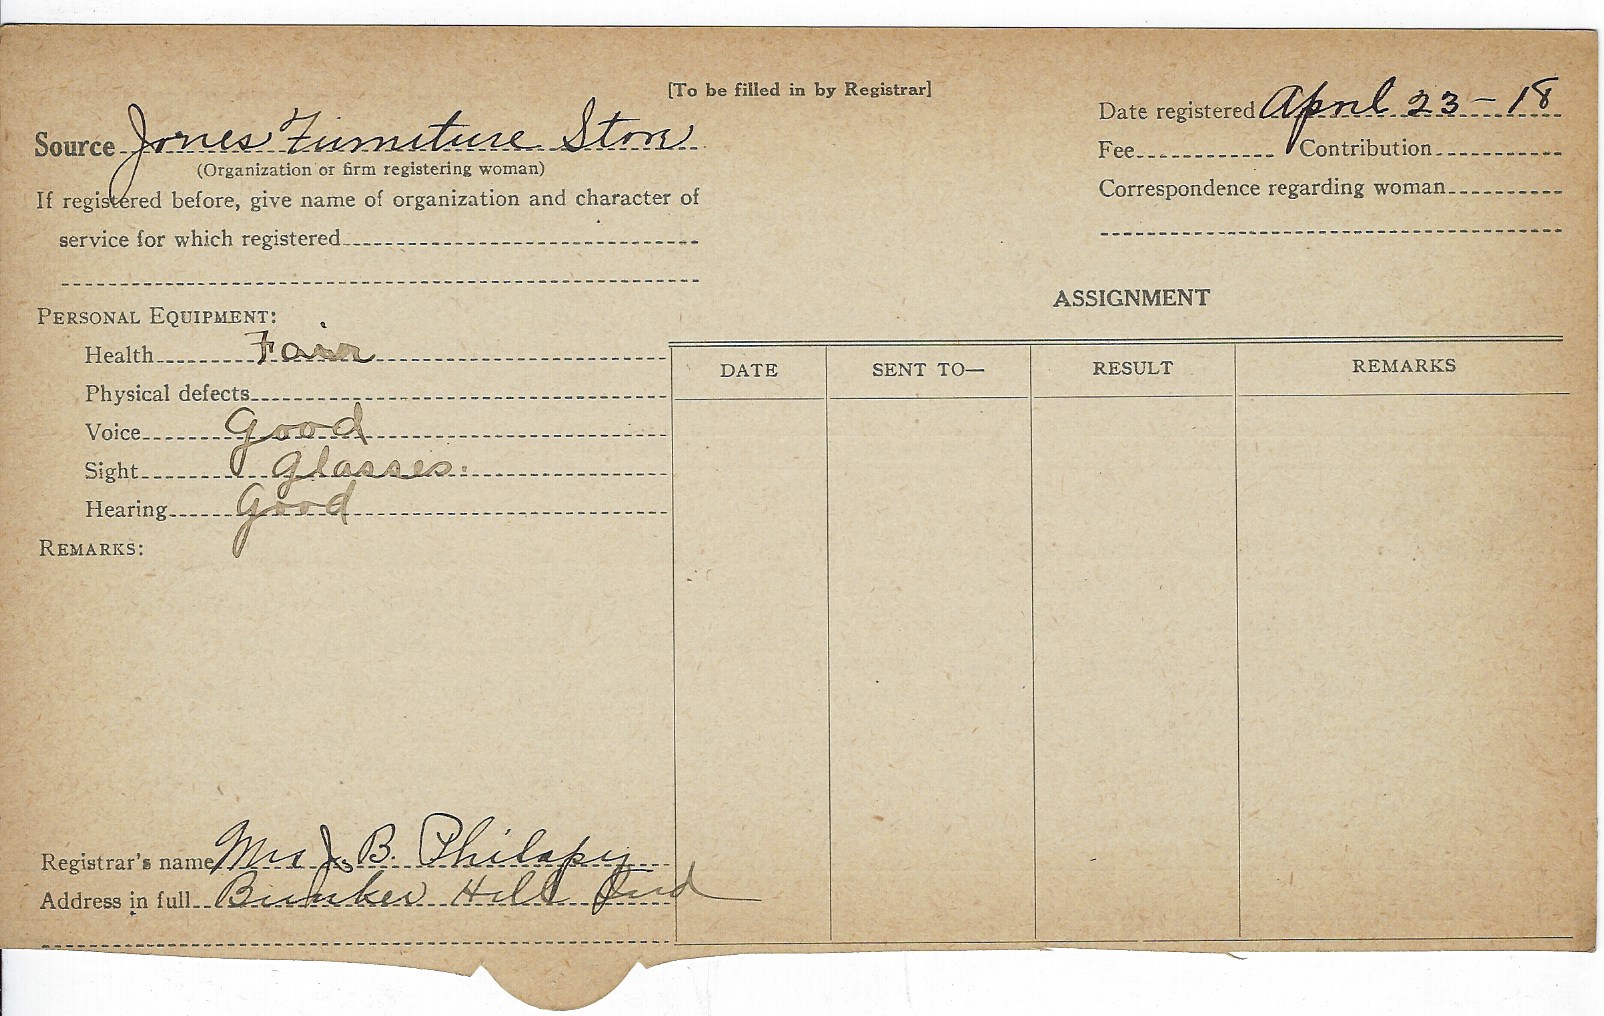 [To be filled in by Registrar]
Source Jones Furniture Store
(Organization or firm registering woman)
If registered before, give name of organization and character of
service for which registered
Date registered April 23-18
Fee Contribution
Correspondence regarding woman
PERSONAL EQUIPMENT:
Health Fair
Physical defects
Voice Good
Sight Glasses.
Hearing Good
REMARKS:
ASSIGNMENT
DATE SENT TO— RESULT REMARKS
Registrar's name Mrs J. B. Philapy
Address in full Bunker Hill Ind